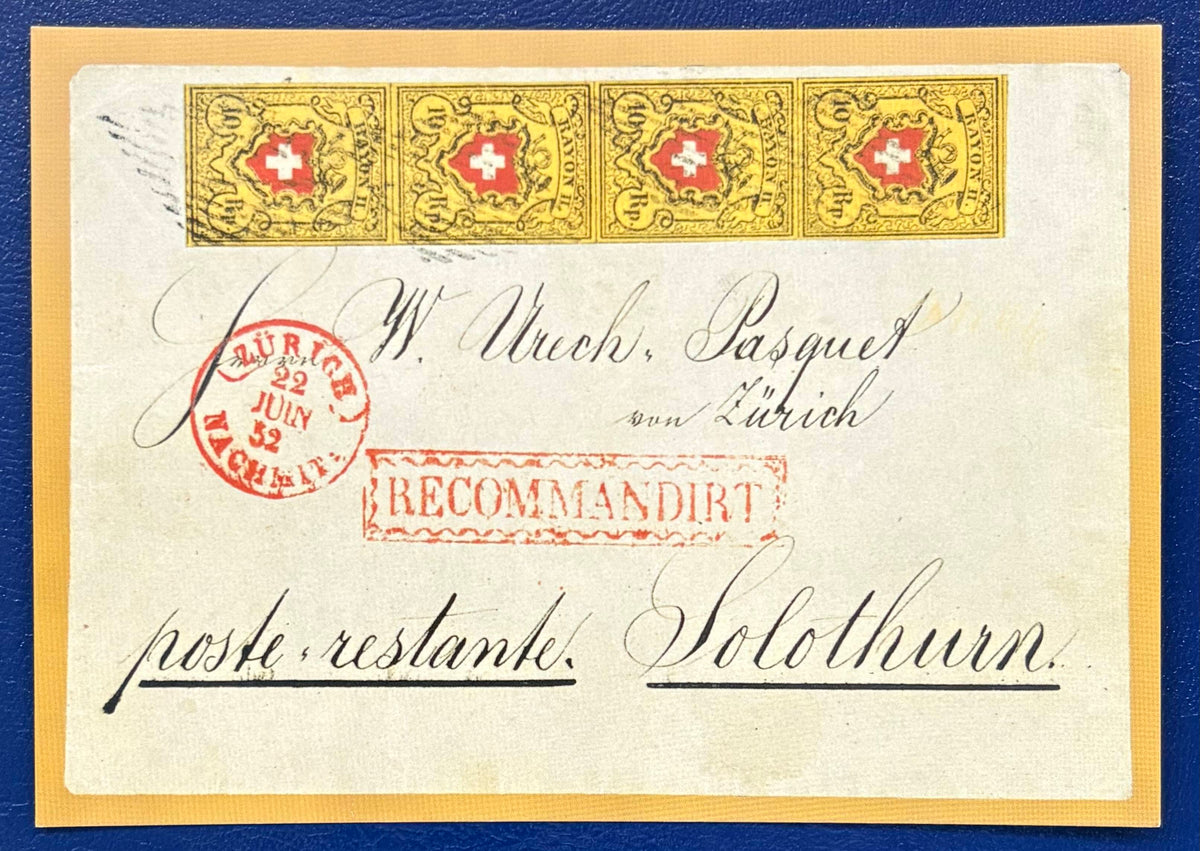 10 RAYON II. Rp
10 RAYON II. Rp
10 RAYON II. Rp
10 RAYON II. Rp
Herrn W. Urech-Pasquet
von Zürich
ZÜRICH
22
JUIN
52
NACHMIT.
RECOMMANDIRT
poste-restante. Solothurn.